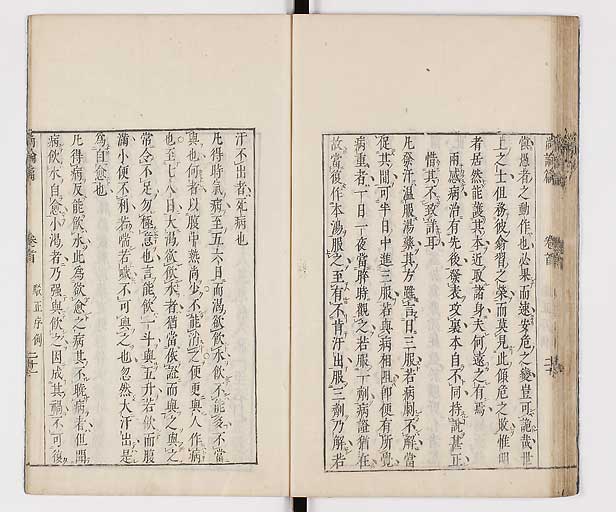 愼愚者之動作也必果而速安危之變豈可詭哉世
上之士但務彼翕習之榮而莫見此傾危之敗惟明
者居然能護其本近取諸身夫何遠之有焉
兩感病治有先後發表攻裏本自不同持説甚正
惜其不致詳耳
凡發汗温服湯藥其方雖言日三服若病劇不解當
促其間可半日中進三服若與病相阻即便有所覺
病重者一日一夜當晬時觀之若服一劑病證猶在
故當復作本湯服之至有不肯汗出服三劑乃解若
汗不出者死病也
凡得時氣病至五六日而渴欲飲水飲不能多不當
與也何者以腹中熱尚少不能消之便更與人作病
也至七八日大渴欲飲水者猶當依證而與之與之
常令不足勿極意也言能飲一斗與五升若飲而腹
滿小便不利若喘若噦不可與之也忽然大汗出是
爲自愈也
凡得病反能飲水此爲欲愈之病其不曉病者但聞
病飲水自愈小渴者乃强與飲之因成其禍不可復
尚論篇
卷首
尚論篇
卷首
駁正序例